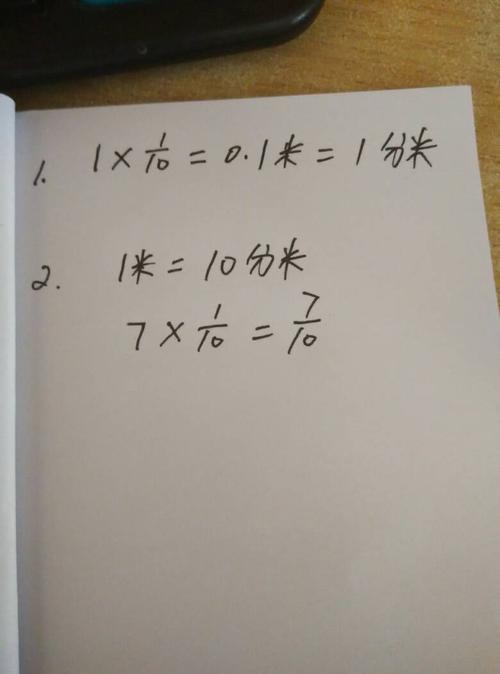 1. 1×1/10=0.1米=1分米
2. 1米=10分米
7×1/10=7/10